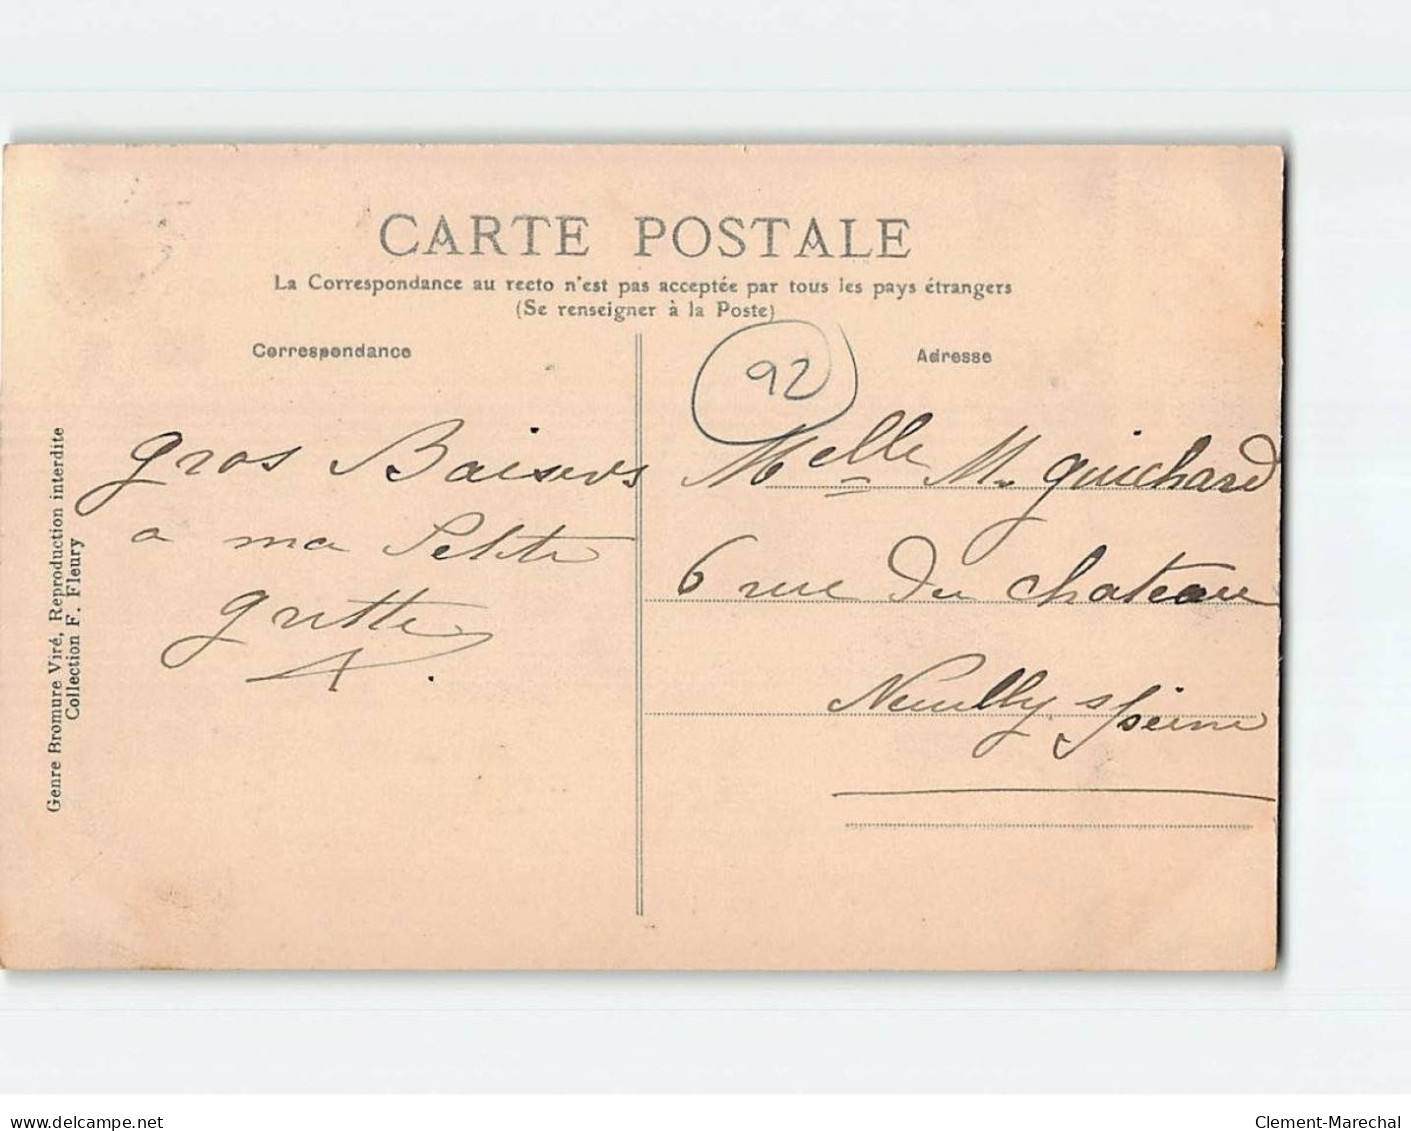 CARTE POSTALE
La Correspondance au recto n'est pas acceptée par tous les pays étrangers
(Se renseigner à la Poste)
Correspondance
Adresse
92
gros Baisers
a ma Petite
gutte
Melle M. guichard
6 rue du chateau
Neuilly s/seine
Genre Bromure Viré, Reproduction interdite
Collection F. Fleury
www.delcampe.net
Clement-Marechal